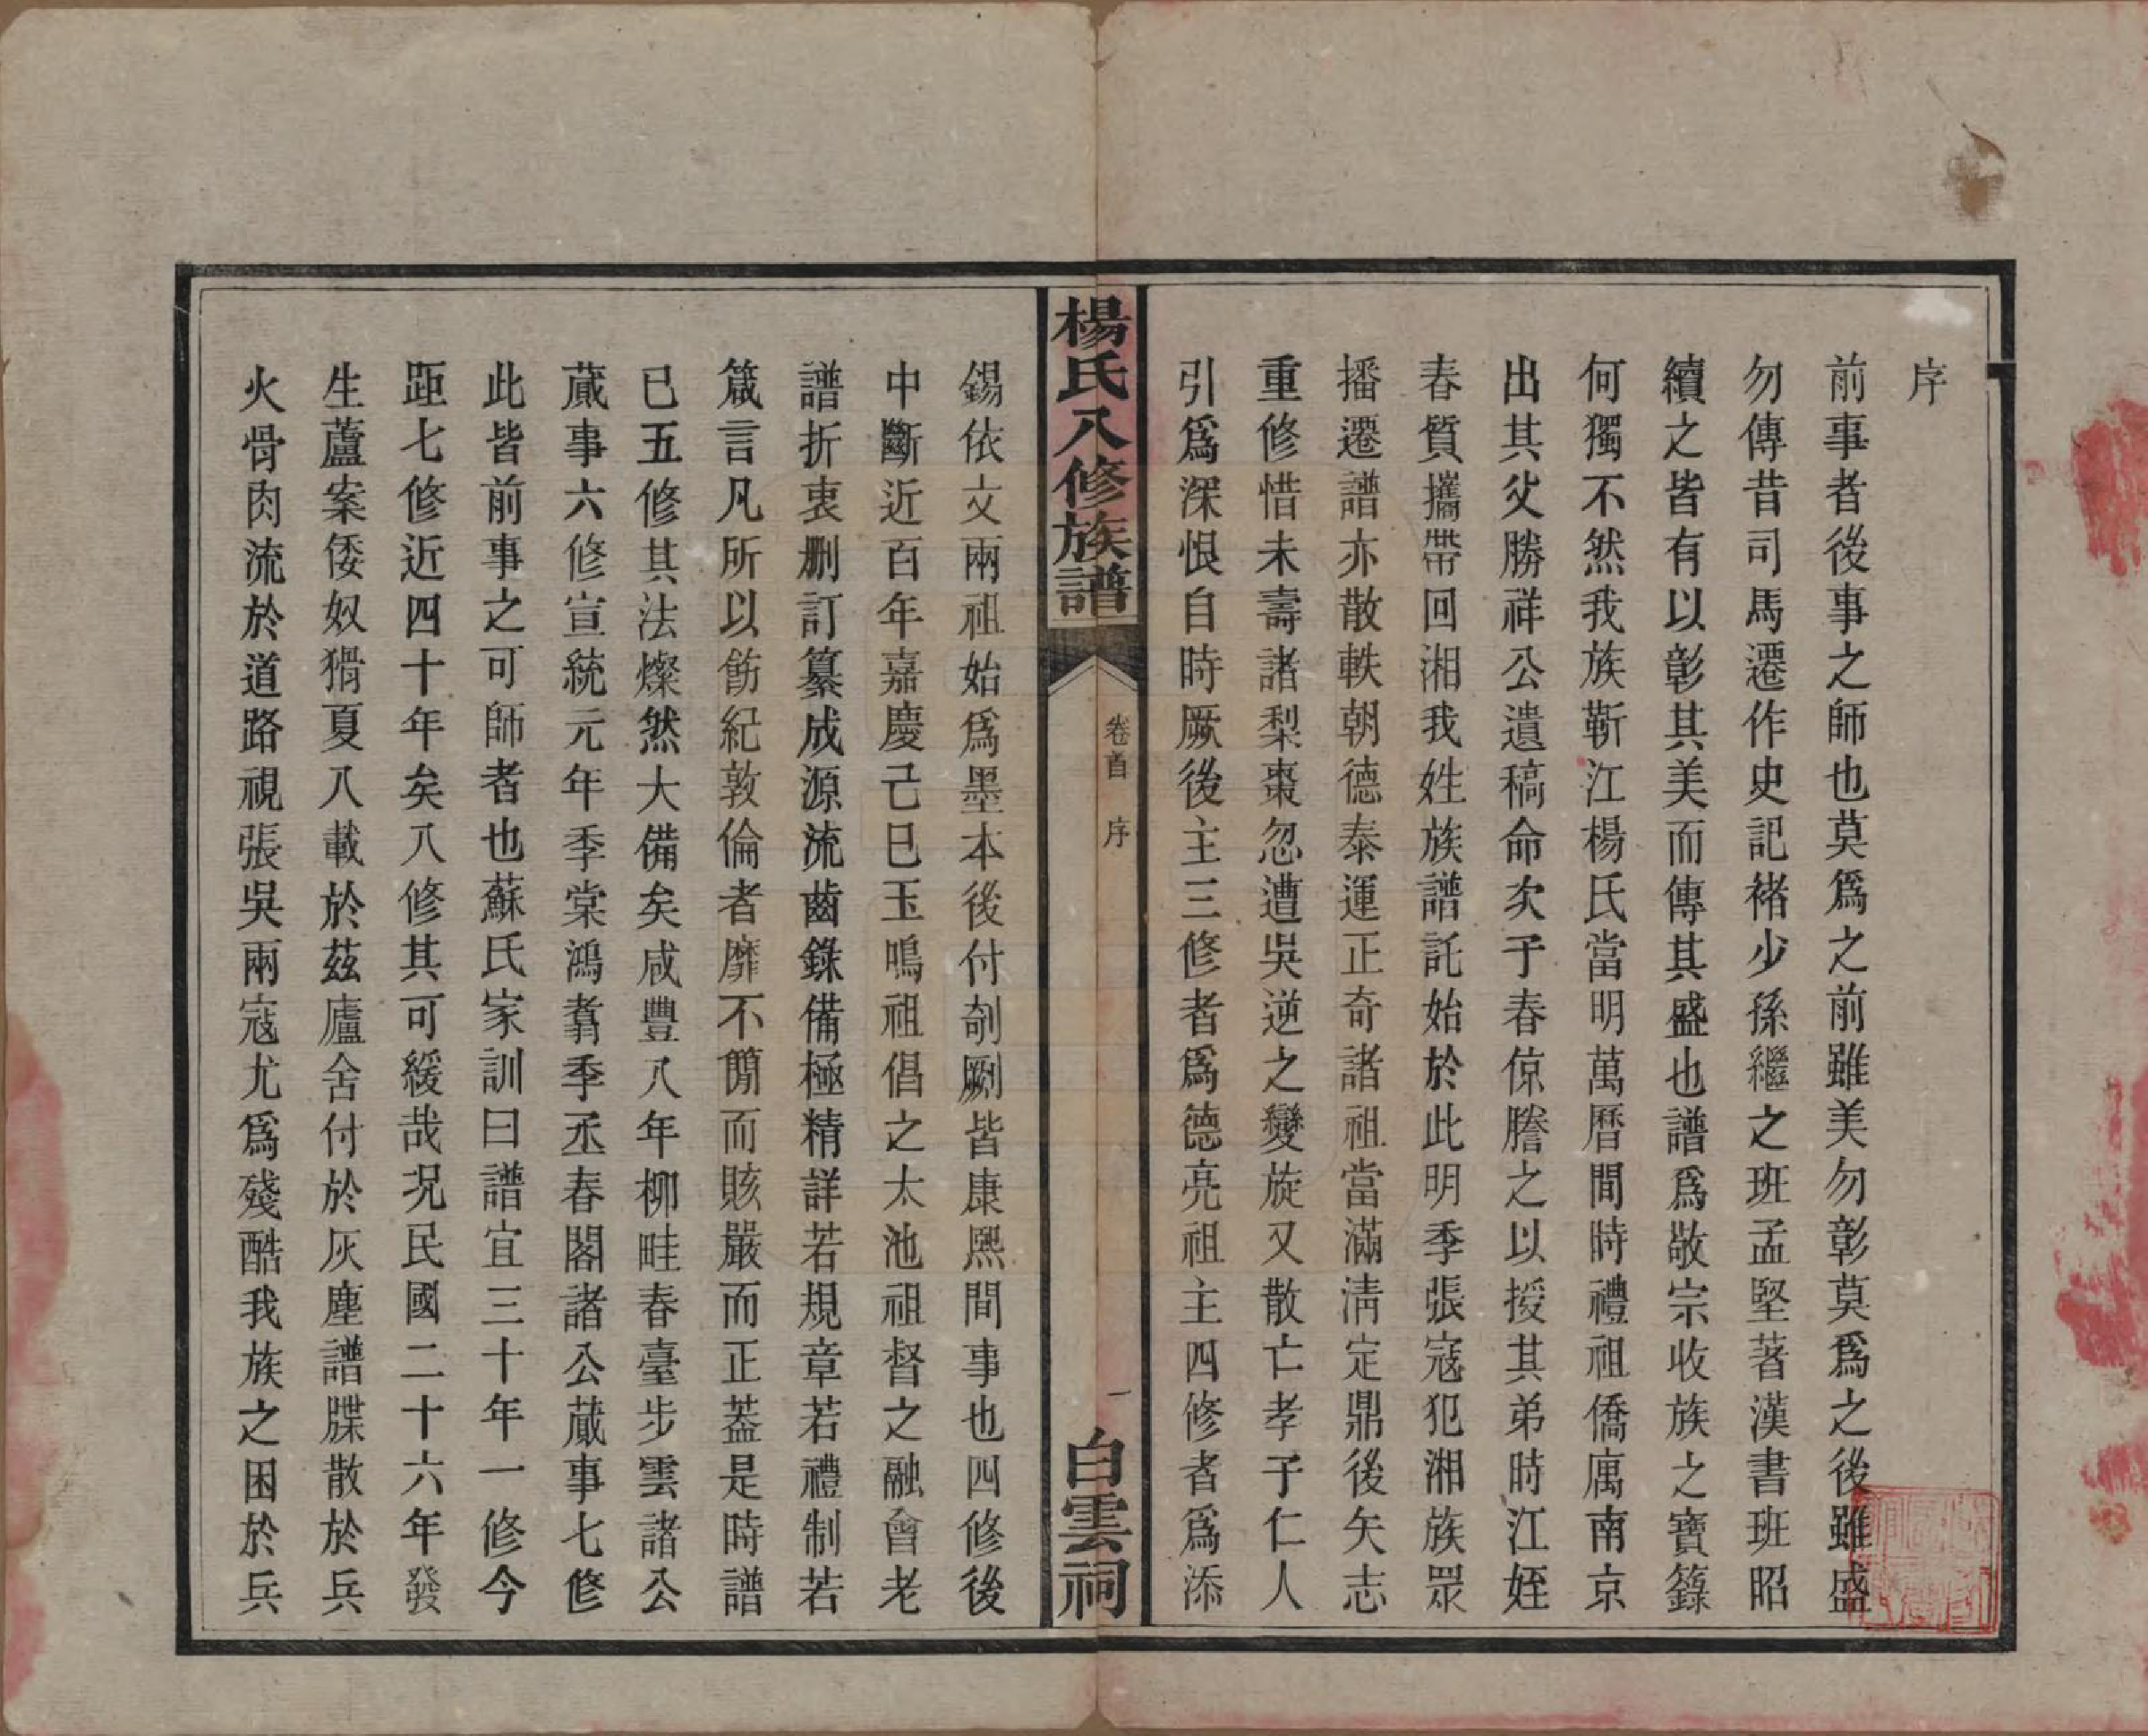 序
前事者後事之師也莫爲之前雖美勿彰莫爲之後雖盛
勿傳昔司馬遷作史記褚少孫繼之班孟堅著漢書班昭
續之皆有以彰其美而傳其盛也譜爲敬宗收族之寶籙
何獨不然我族靳江楊氏當明萬曆間時禮祖僑厲南京
出其父勝祥公遺稿命次子春倞謄之以授其弟時江姪
春質攜帶回湘我姓族譜託始於此明季張寇犯湘族眾
播遷譜亦散軼朝德泰運正奇諸祖當滿淸定鼎後矢志
重修惜未壽諸梨棗忽遭吳逆之變旋又散亡孝子仁人
引爲深恨自時厥後主三修者爲德亮祖主四修者爲添
楊氏八修族譜
卷首 序
一
白雲祠
錫依文兩祖始爲墨本後付剞劂皆康熙間事也四修後
中斷近百年嘉慶己巳玉鳴祖倡之太池祖督之融會老
譜折衷刪訂纂成源流齒錄備極精詳若規章若禮制若
箴言凡所以飭紀敦倫者靡不簡而賅嚴而正葢是時譜
已五修其法燦然大備矣咸豐八年柳畦春臺步雲諸公
蕆事六修宣統元年季棠鴻翥季丞春閣諸公蕆事七修
此皆前事之可師者也蘇氏家訓曰譜宜三十年一修今
距七修近四十年矣八修其可緩哉況民國二十六年發
生蘆案倭奴猾夏八載於茲廬舍付於灰塵譜牒散於兵
火骨肉流於道路視張吳兩寇尤爲殘酷我族之困於兵